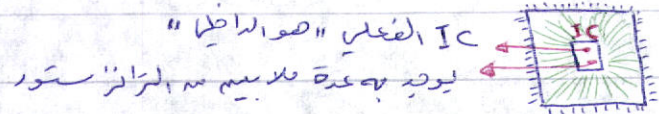 IC الفعلي "هو الداخلي"
IC
يوجد به عدة ملايين من الترانزستور